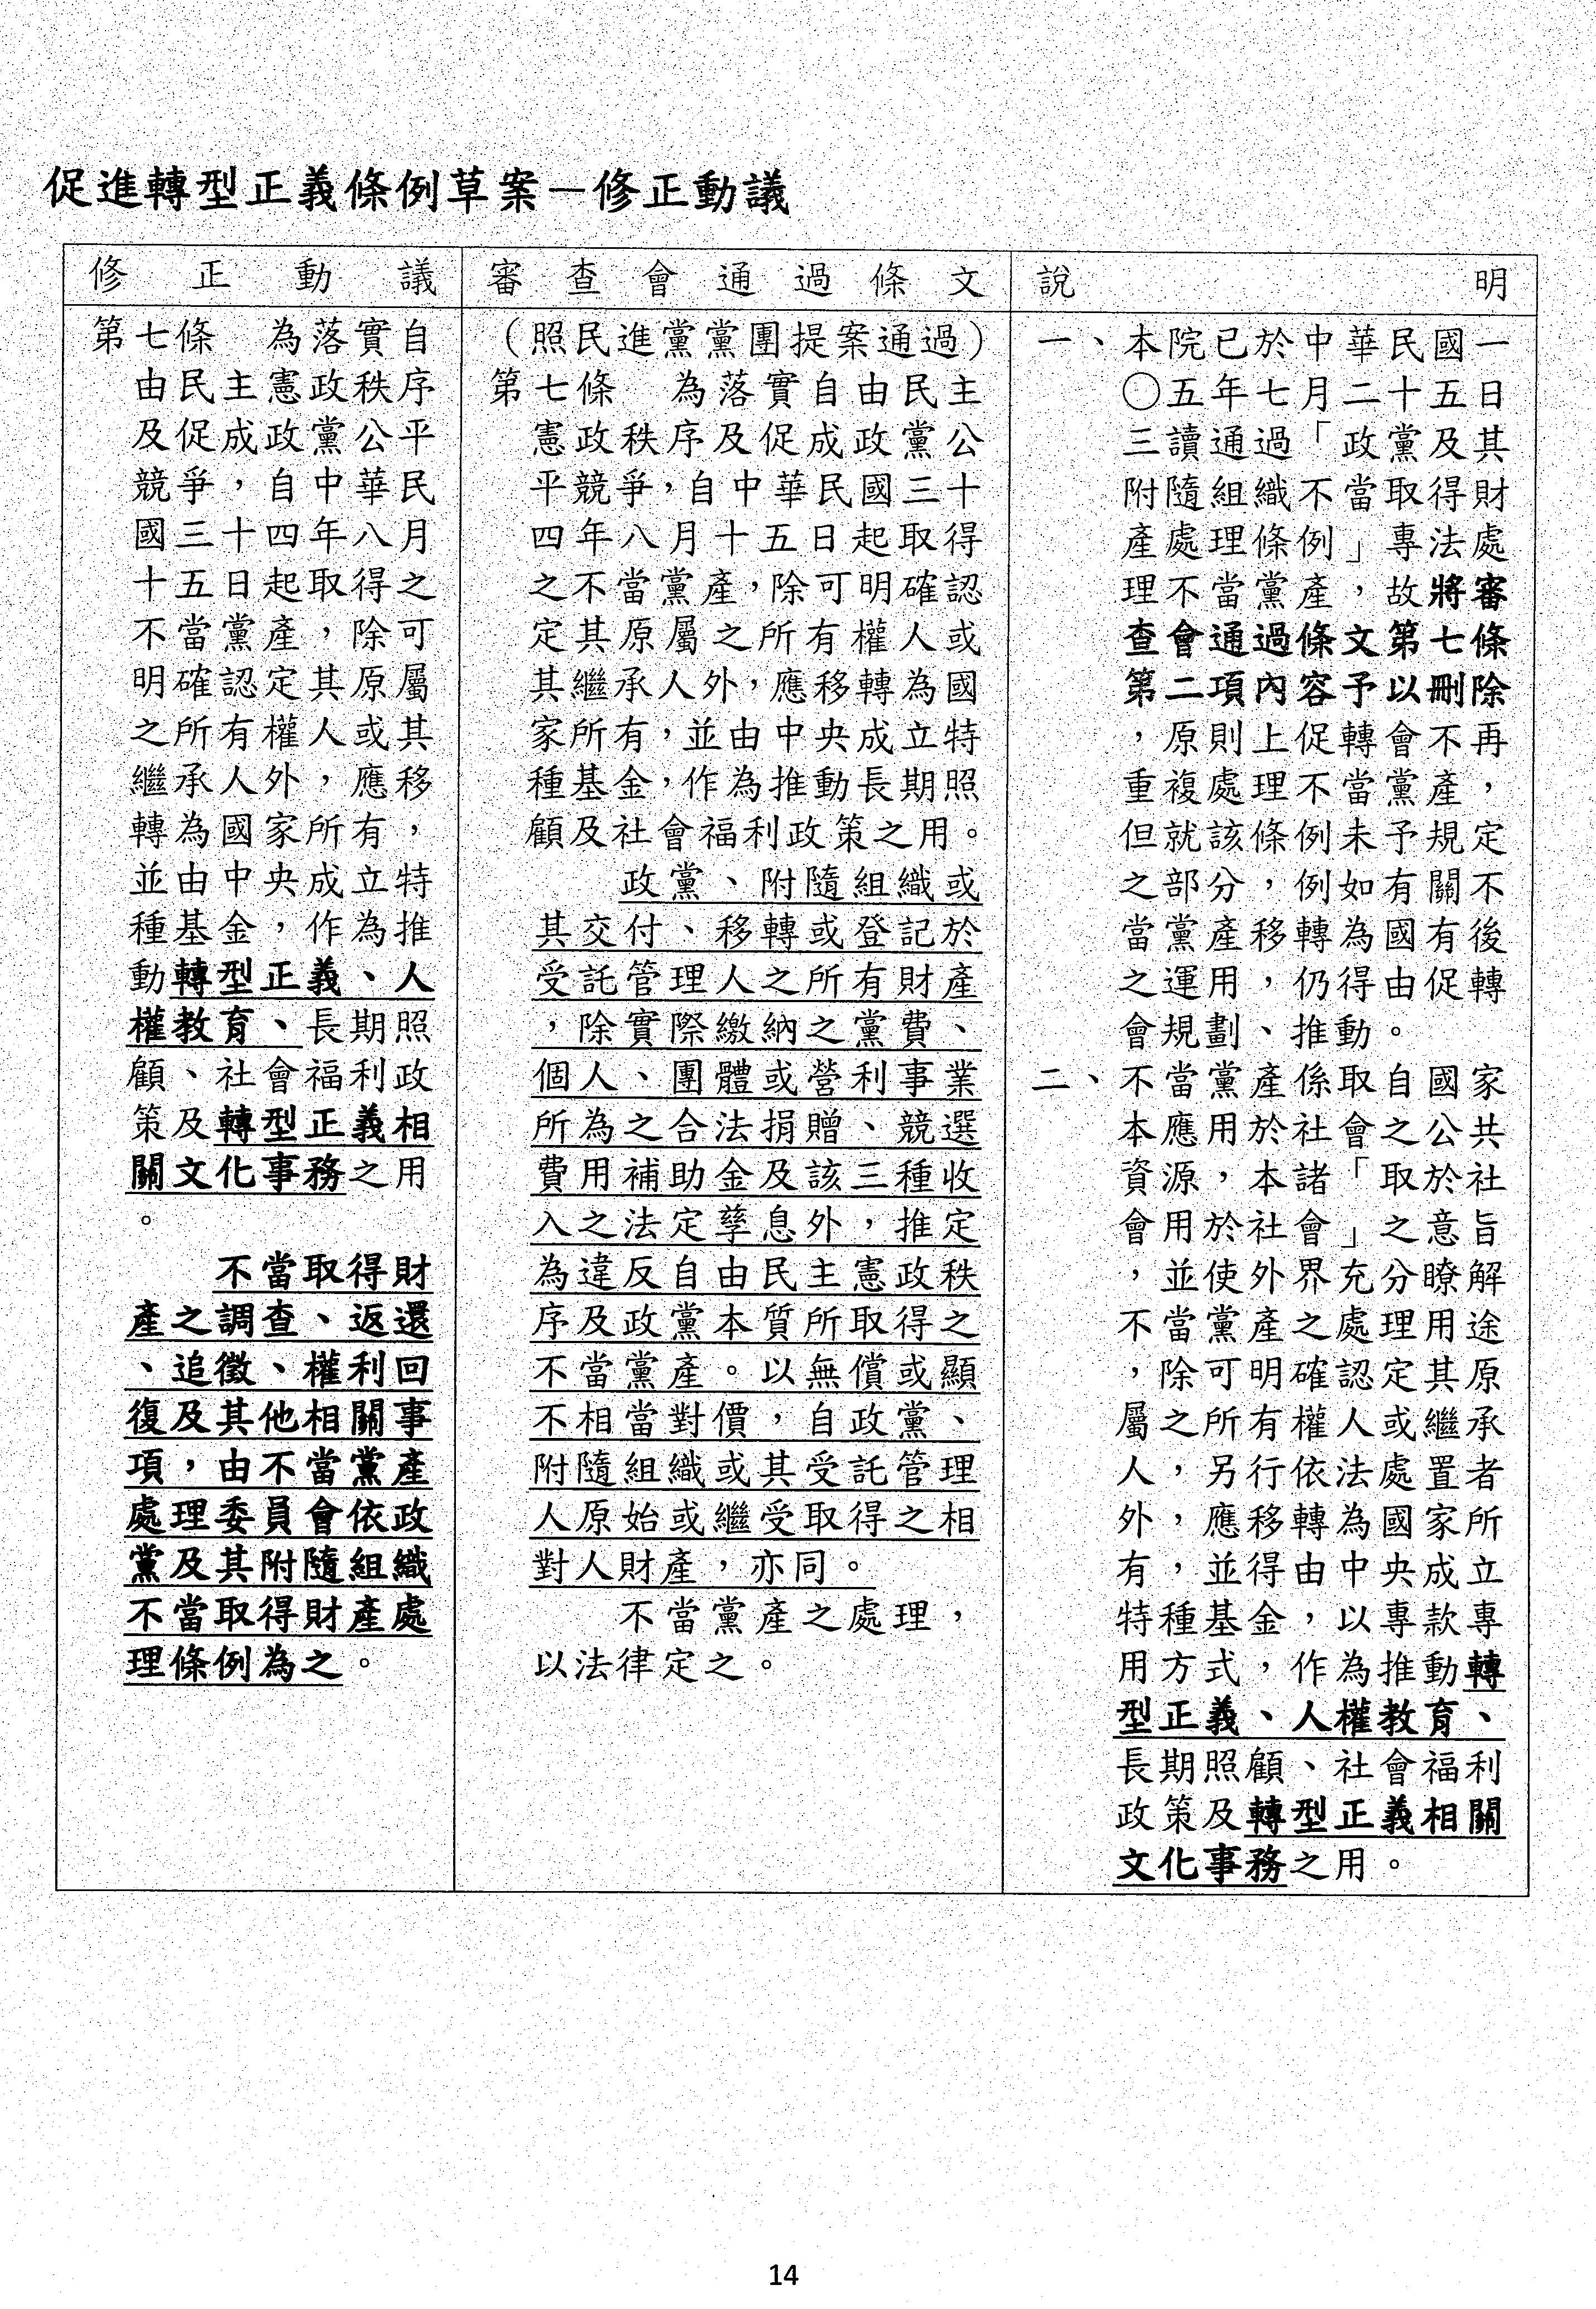 促進轉型正義條例草案－修正動議
修正動議
第七條　為落實自
由民主憲政秩序
及促成政黨公平
競爭，自中華民
國三十四年八月
十五日起取得之
不當黨產，除可
明確認定其原屬
之所有權人或其
繼承人外，應移
轉為國家所有，
並由中央成立特
種基金，作為推
動轉型正義、人
權教育、長期照
顧、社會福利政
策及轉型正義相
關文化事務之用
。
不當取得財
產之調查、返還
、追徵、權利回
復及其他相關事
項，由不當黨產
處理委員會依政
黨及其附隨組織
不當取得財產處
理條例為之。
審查會通過條文
（照民進黨黨團提案通過）
第七條　為落實自由民主
憲政秩序及促成政黨公
平競爭，自中華民國三十
四年八月十五日起取得
之不當黨產，除可明確認
定其原屬之所有權人或
其繼承人外，應移轉為國
家所有，並由中央成立特
種基金，作為推動長期照
顧及社會福利政策之用。
政黨、附隨組織或
其交付、移轉或登記於
受託管理人之所有財產
，除實際繳納之黨費、
個人、團體或營利事業
所為之合法捐贈、競選
費用補助金及該三種收
入之法定孳息外，推定
為違反自由民主憲政秩
序及政黨本質所取得之
不當黨產。以無償或顯
不相當對價，自政黨、
附隨組織或其受託管理
人原始或繼受取得之相
對人財產，亦同。
不當黨產之處理，
以法律定之。
說明
一、本院已於中華民國一
〇五年七月二十五日
三讀通過「政黨及其
附隨組織不當取得財
產處理條例」專法處
理不當黨產，故將審
查會通過條文第七條
第二項內容予以刪除
，原則上促轉會不再
重複處理不當黨產，
但就該條例未予規定
之部分，例如有關不
當黨產移轉為國有後
之運用，仍得由促轉
會規劃、推動。
二、不當黨產係取自國家
本應用於社會之公共
資源，本諸「取於社
會用於社會」之意旨
，並使外界充分瞭解
不當黨產之處理用途
，除可明確認定其原
屬之所有權人或繼承
人，另行依法處置者
外，應移轉為國家所
有，並得由中央成立
特種基金，以專款專
用方式，作為推動轉
型正義、人權教育、
長期照顧、社會福利
政策及轉型正義相關
文化事務之用。
14